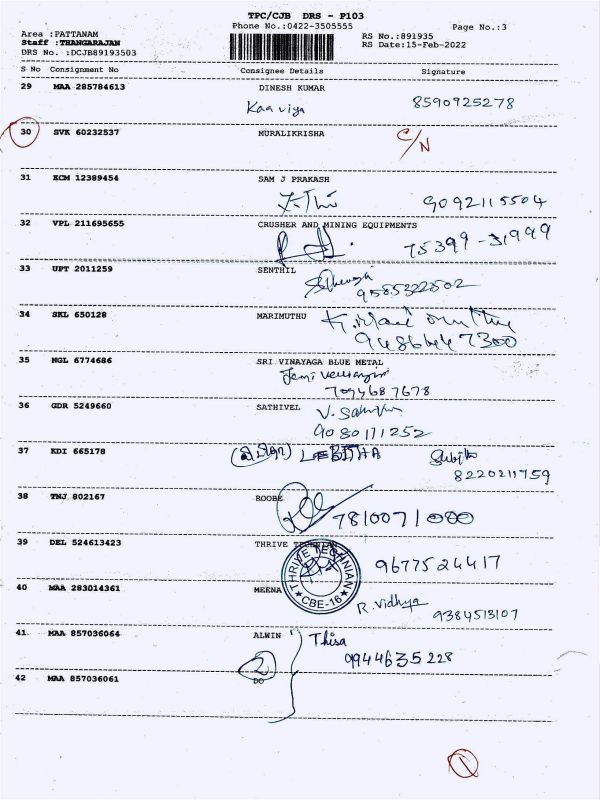 TPC/CJB DRS - P103
Phone No.:0422-3505555
Page No.:3
Area :PATTANAM
RS No.:891935
Staff :THANGARAJAN
RS Date:15-Feb-2022
DRS No. :DCJB89193503
S No Consignment No Consignee Details Signature
29 MAA 285784613 DINESH KUMAR
Kaaviya 8590925278
30 SVK 60232537 MURALIKRISHA C/N
31 KCM 12389454 SAM J PRAKASH
9092115504
32 VPL 211695655 CRUSHER AND MINING EQUIPMENTS
75399-31999
33 UPT 2011259 SENTHIL
9585322502
34 SKL 650128 MARIMUTHU
35 NGL 6774686 SRI VINAYAGA BLUE METAL
7094687678
36 GDR 5249660 SATHIVEL
9080171252
37 KDI 665178
8220211759
38 TNJ 802167 ROOBE
7810071000
39 DEL 524613423 THRIVE
THRIVE TECHNIAN
CBE-16
9677524417
40 MAA 283014361 MEENA
R. Vidhya 9384513107
41. MAA 857036064 ALWIN Thisa
2 9944635228
42 MAA 857036061 DO
1